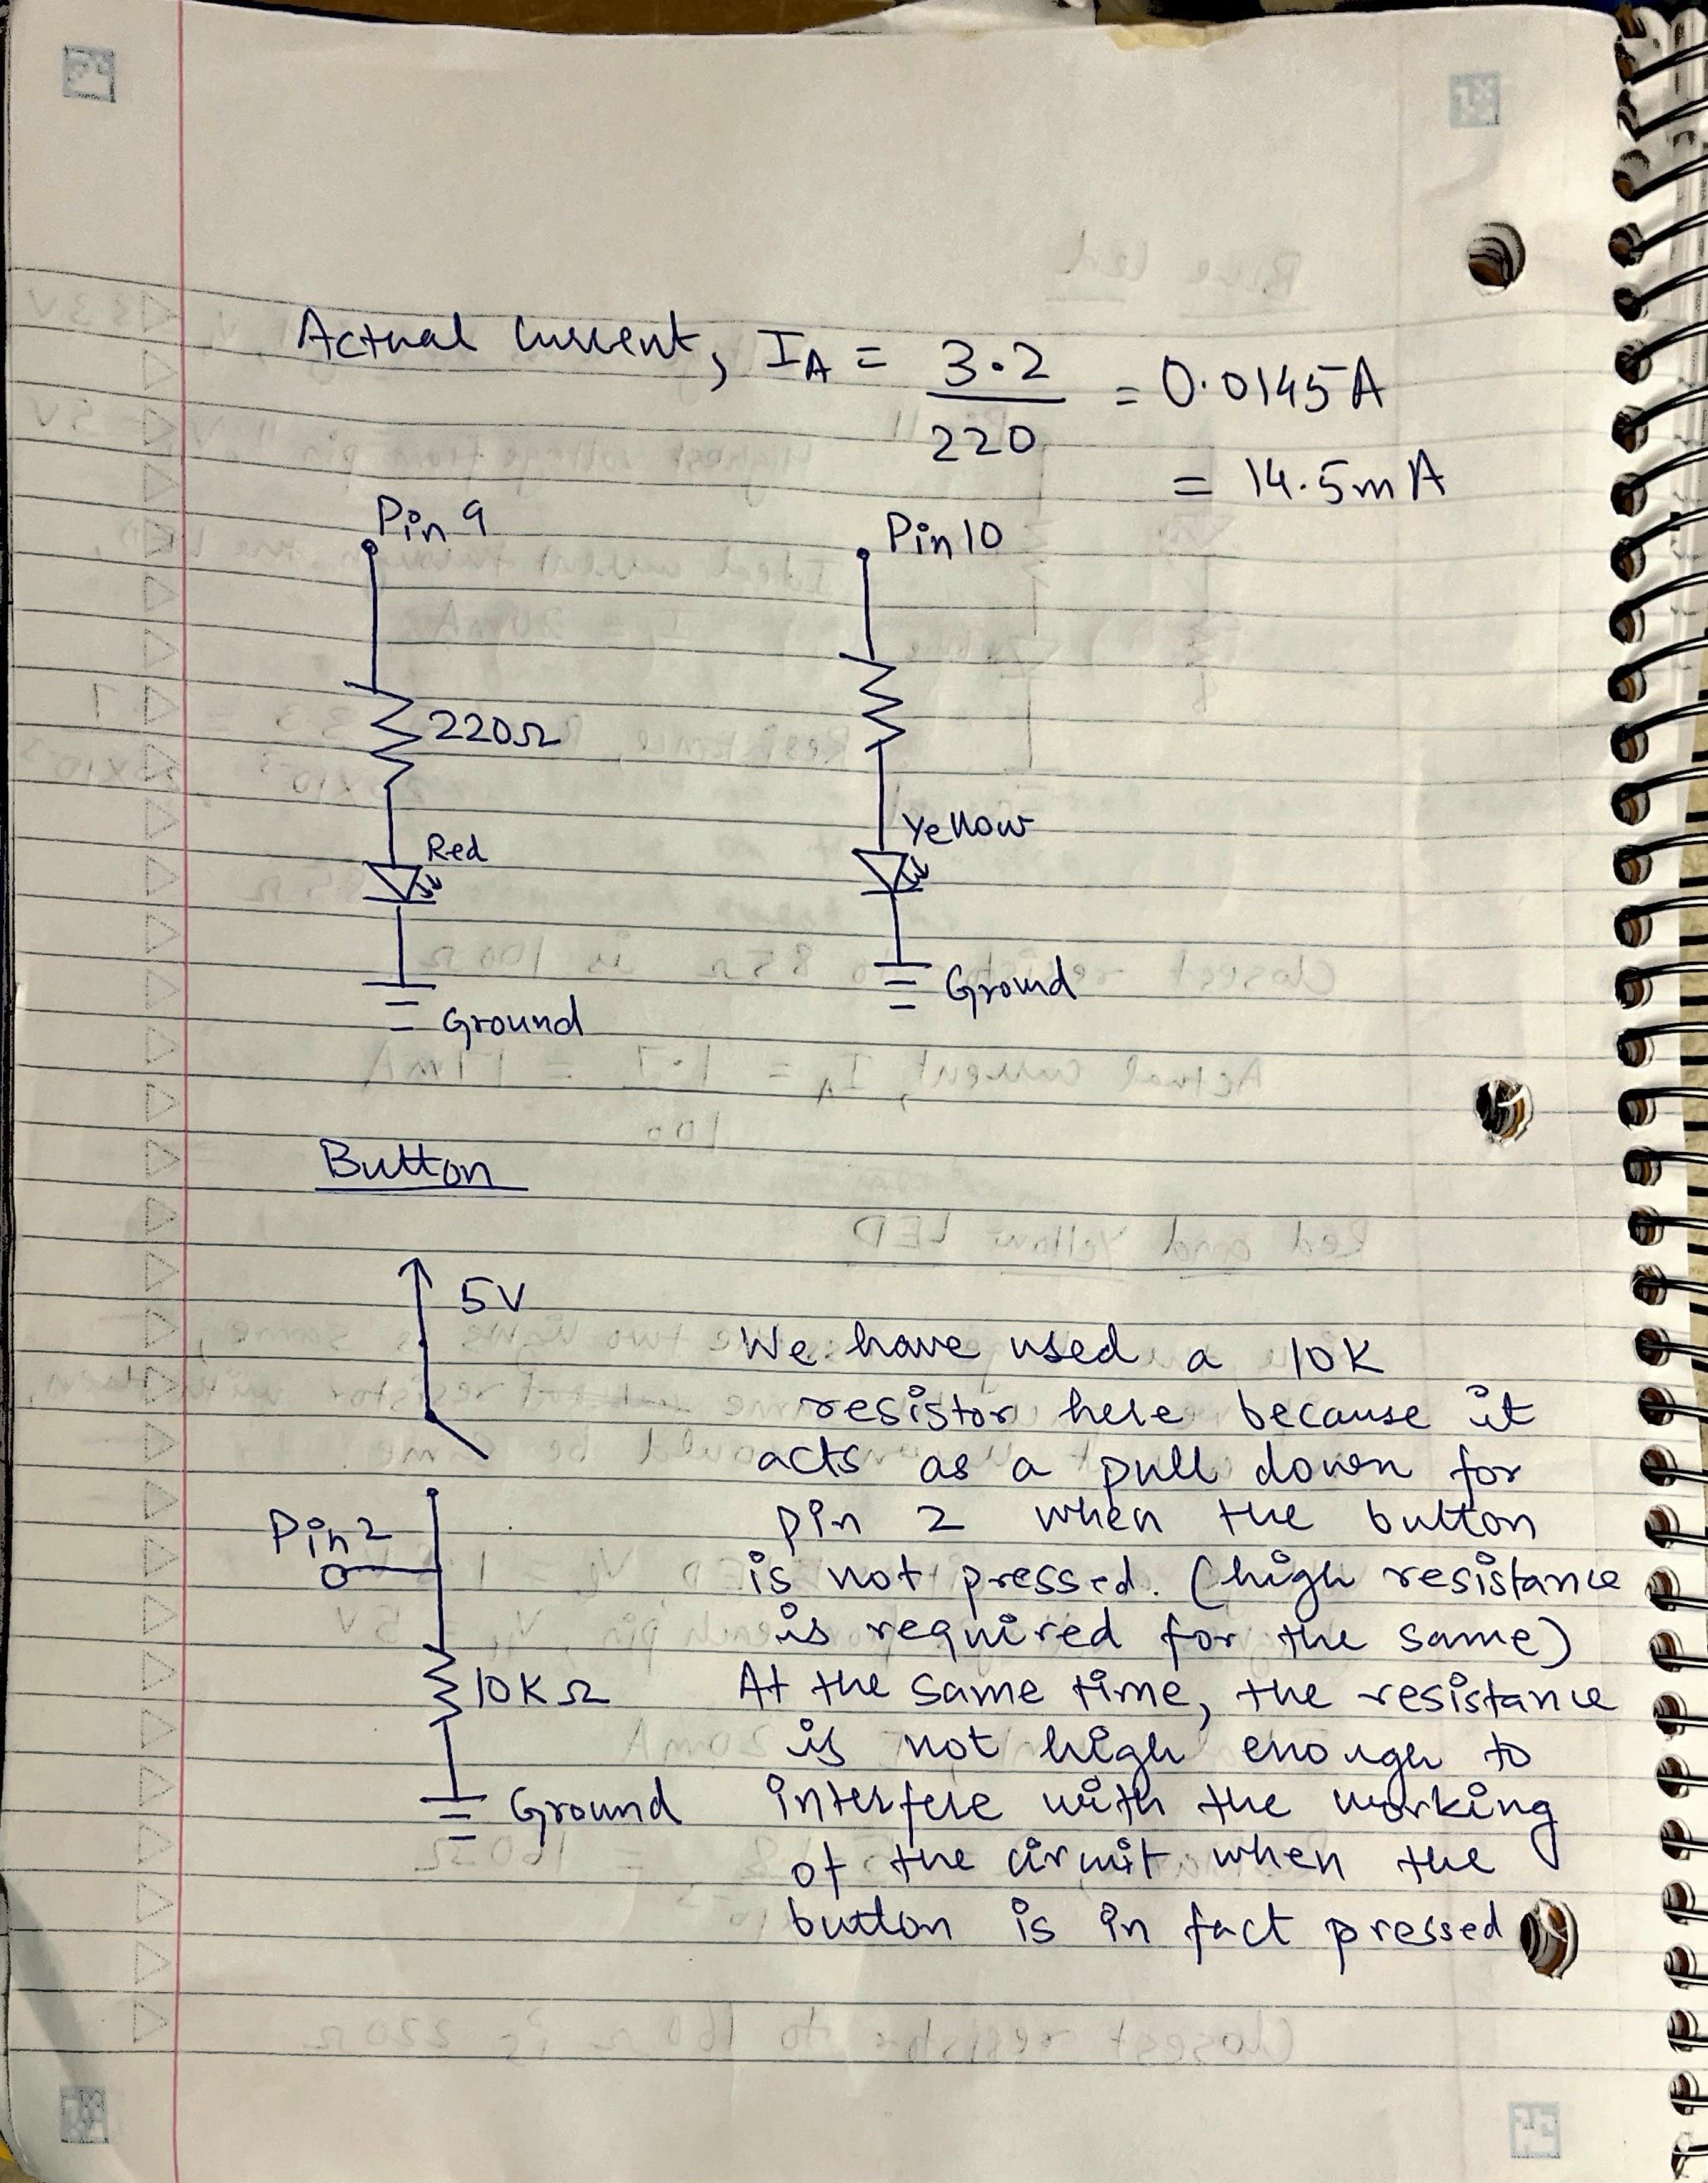 Actual current, IA = 3.2 / 220 = 0.0145A
= 14.5mA
Pin 9
Pin 10
220Ω
Yellow
Red
Ground
Ground
Button
5V
We have used a 10K
resistor here because it
acts as a pull down for
Pin 2
pin 2 when the button
is not pressed. (high resistance
is required for the same)
10KΩ
At the same time, the resistance
is not high enough to
Ground
interfere with the working
of the circuit when the
button is in fact pressed